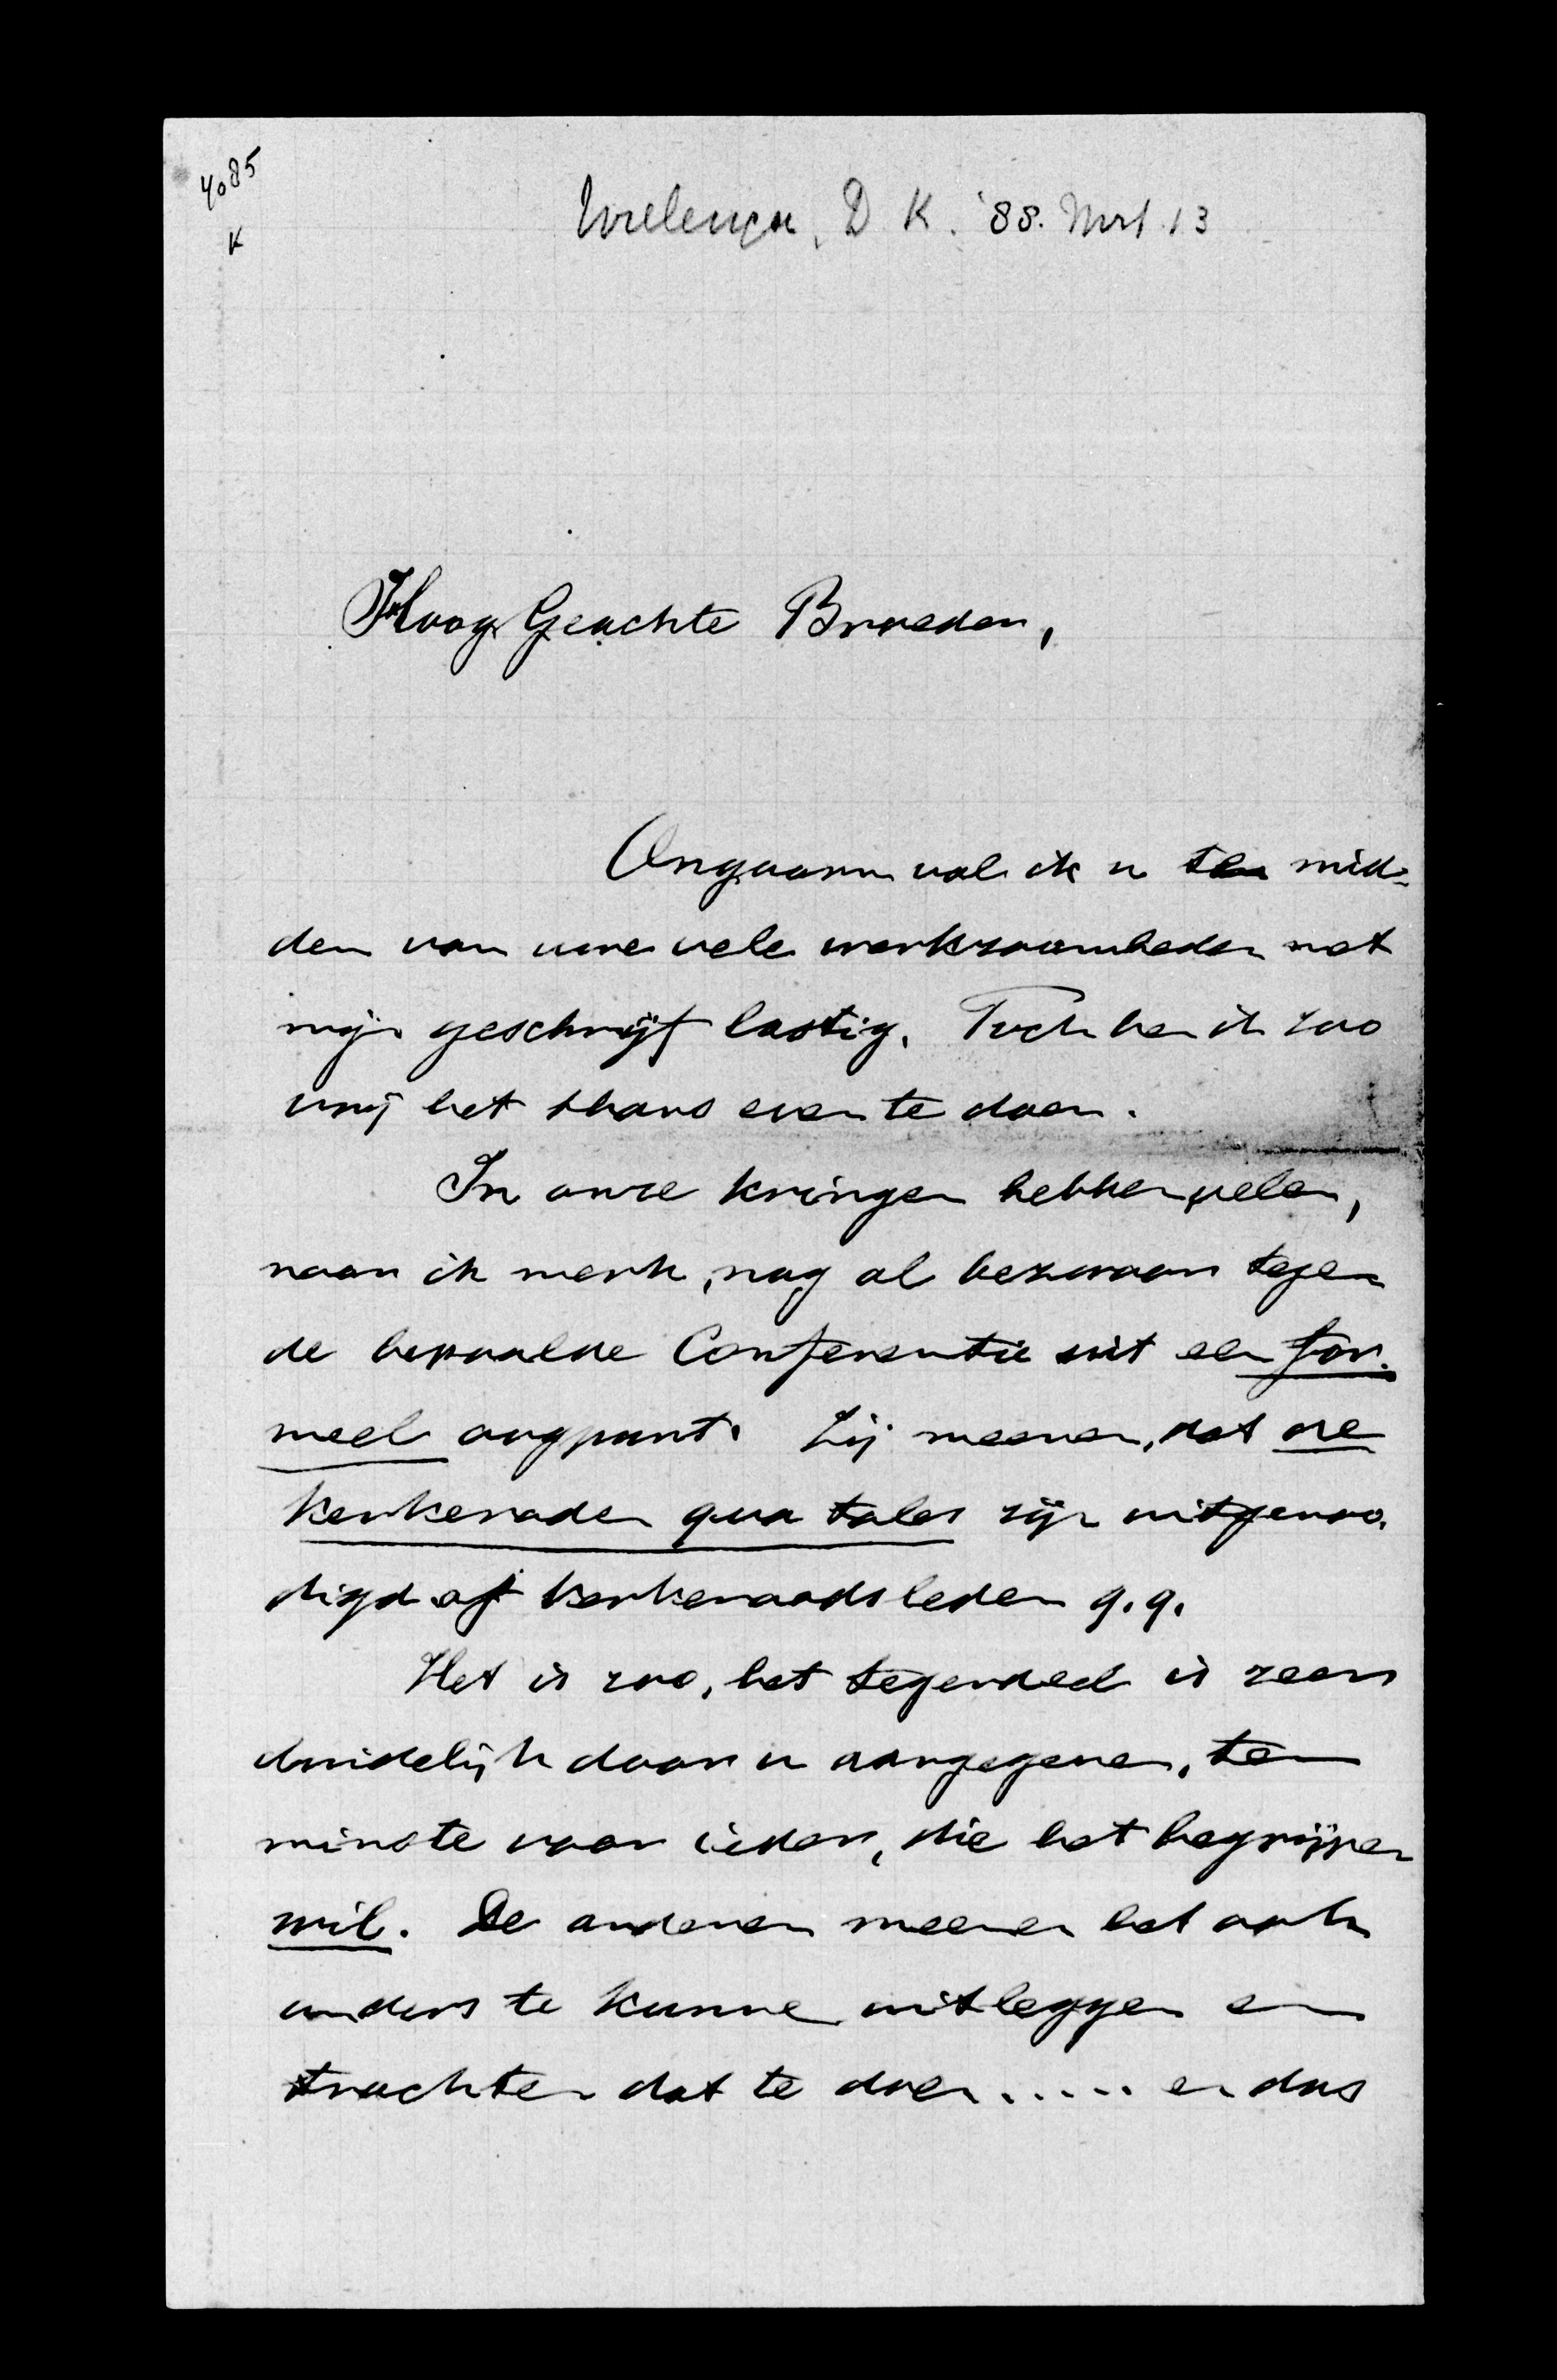 4085
K
Wielenga, D. K. '88. Mrt 13
Hoog Geachte Broeder,
Ongaarn val ik u ten mid-
den van uwe vele werkzaamheden met
mijn geschrijf lastig. Toch ben ik zoo
vrij het thans even te doen.
In onze kringen hebben velen,
naar ik merk, nog al bezwaar tegen
de bepaalde Conferentie uit een for-
meel oogpunt. Zij meenen, dat de
kerkeraden qua tales zijn uitgenoo-
digd of kerkeraadsleden q.q.
Het is zoo, het tegendeel is zeer
duidelijk door u aangegeven, ten
minste voor ieder, die het begrijpen
wil. De anderen meenen het ook
anders te kunne uitleggen en
trachten dat te doen ..... en dus